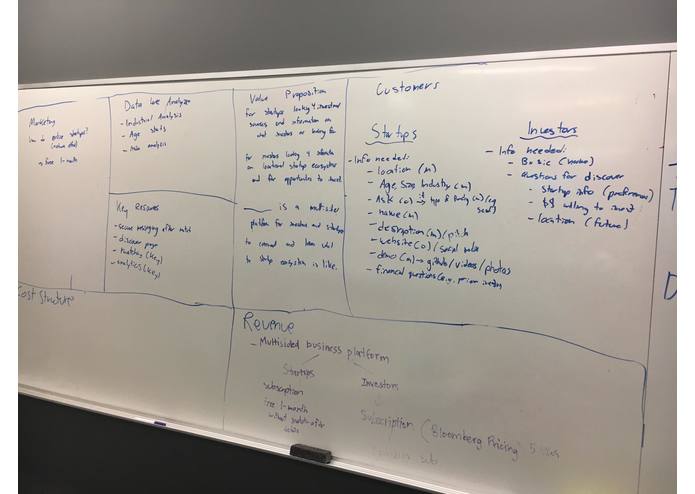 Marketing
how do entice startups?
(network effect)
→ free 1-month
Data we Analyze
- Industrial Analysis
- Age stats
- analysis
Key Resources
- secure messaging after match
- discover page
- Matching (key)
- analytics (key)
Value Proposition
for startups looking 4 investment
sources and information on
what investors are looking for
for investors looking 4 information
on startup ecosystem
and for opportunities to invest.
___ is a multisided
platform for investors and startups
to connect and learn what
the startup ecosystem is like.
Customers
Startups
- Info needed:
- location (m)
- Age, Size, Industry (m)
- Ask (o) → type of funding (m) (eg
seed)
- name (m)
- description (m) / pitch
- website (o) / social media
- demo (m) → github / videos / photos
- financial questions (e.g. prior
Investors
- Info needed:
- Basic (name)
- questions for discover
- startup info (preference)
- $$ willing to invest
- location (future)
Cost Structure
Revenue
- Multisided business platform
Startups
subscription
free 1-month
without
Investors
Subscription ("Bloomberg Pricing" 5
sub